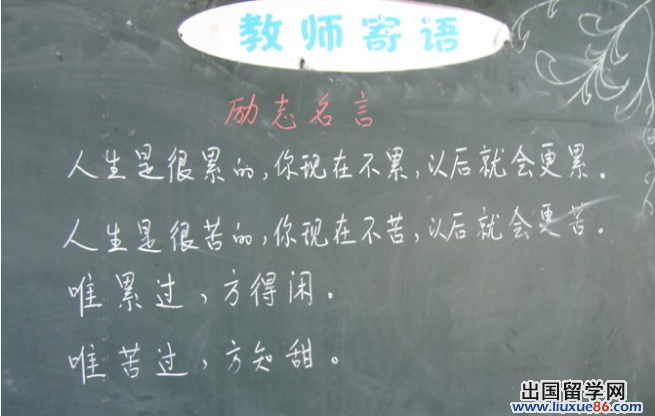 教师寄语
励志名言
人生是很累的，你现在不累，以后就会更累。
人生是很苦的，你现在不苦，以后就会更苦。
唯累过，方得闲。
唯苦过，方知甜。
出国留学网
www.liuxue86.com